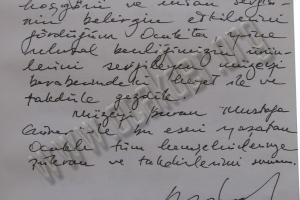 hoşgörü ve insan sevgi-
nin belirgin etkilerini
gördüğüm Ocakta yine
ulusal benliğimizin
lerini sergileyen müzeyi
beraberimdeki heyet ile ve
takdirle gezdik
Müzeyi kuran Mustafa
Güner ile bu eseri yaşatan
Ocaklı tüm hemşehrilerime
şükran ve takdirlerimi sunarım.